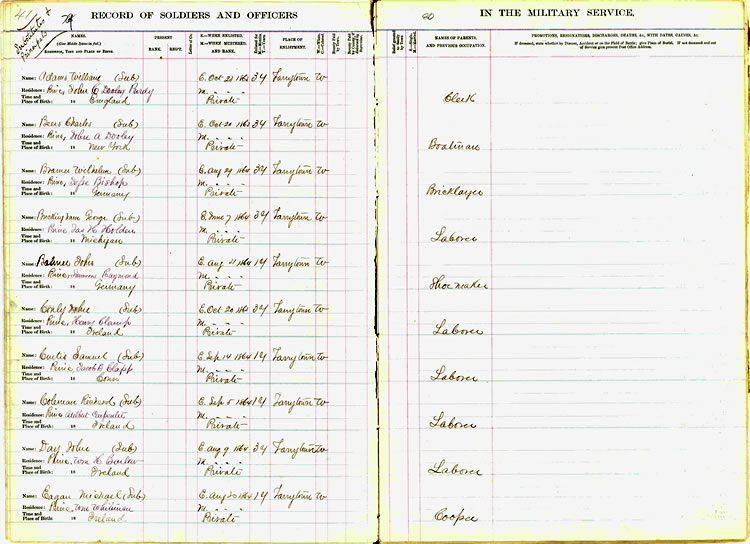 41
79
Substitutes &
RECORD OF SOLDIERS AND OFFICERS
80
IN THE MILITARY SERVICE.
NAMES.
(Give Middle Names in full.)
RESIDENCE, TIME AND PLACE OF BIRTH.
PRESENT
RANK. REGT.
Letter of Co.
E.—WHEN ENLISTED.
M.—WHEN MUSTERED,
AND RANK.
PLACE OF
ENLISTMENT.
NAMES OF PARENTS,
AND PREVIOUS OCCUPATION.
PROMOTIONS, RESIGNATIONS, DISCHARGES, DEATHS, &c., WITH DATES, CAUSES, &c.
If deceased, state whether by Disease, Accident or on the Field of Battle; give Place of Burial. If not deceased and out
of Service give present Post Office Address.
Name: Adams William (Sub) E. Oct 23 1864 3y Tarrytown W
Residence: Prin, John C Dooley Purdy M. " " "
Time and
Place of Birth: 18 England Private Clerk
Name: Beers Charles (Sub) E. Oct 20 1864 3y Tarrytown W
Residence: Prin, John A Dooley M. " " "
Time and
Place of Birth: 18 New York Private Boatman
Name: Bramer Wilhelm (Sub) E. Aug 29 1864 3y Tarrytown W
Residence: Prin, Jesse Bishop M. " " "
Time and
Place of Birth: 18 Germany Private Bricklayer
Name: Buckingham George (Sub) E. 7 1864 3y Tarrytown W
Residence: Prin Jas H Holden M. " " "
Time and
Place of Birth: 18 Michigan Private Laborer
Name: Balmer John (Sub) E. Aug 1864 1y Tarrytown W
Residence: Prin, Raymond M. " " "
Time and
Place of Birth: 18 Germany Private Shoemaker
Name: Conly John (Sub) E. Oct 20 1864 3y Tarrytown W
Residence: Prin, Henry Clamp M. " " "
Time and
Place of Birth: 18 Ireland Private Laborer
Name: Curtis Samuel (Sub) E. Sep 14 1864 1y Tarrytown W
Residence: Prin, Jacob B. Clapp M. " " "
Time and
Place of Birth: 18 Conn Private Laborer
Name: Coleman Richard (Sub) E. Sep 5 1864 1y Tarrytown W
Residence: Prin Carpenter M. " " "
Time and
Place of Birth: 18 Ireland Private Laborer
Name: Day John (Sub) E. Aug 9 1864 3y Tarrytown W
Residence: Prin, Wm H. Barlow M. " " "
Time and
Place of Birth: 18 Ireland Private Laborer
Name: Eagan Michael (Sub) E. Aug 20 1864 1y Tarrytown W
Residence: Prin, Wm Whiteman M. " " "
Time and
Place of Birth: 18 Ireland Private Cooper